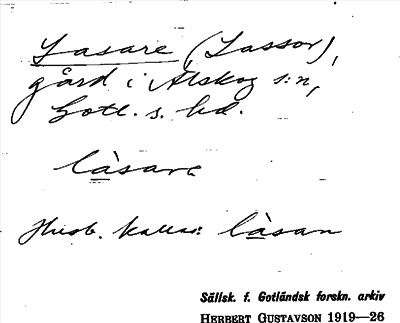 Lasare (Lassor),
gård i Alskog s:n,
Gotl. s. hd.
làsarɛ
Husb. kallas: làsan
Sällsk. f. Gotländsk forskn. arkiv
HERBERT GUSTAVSON 1919—26